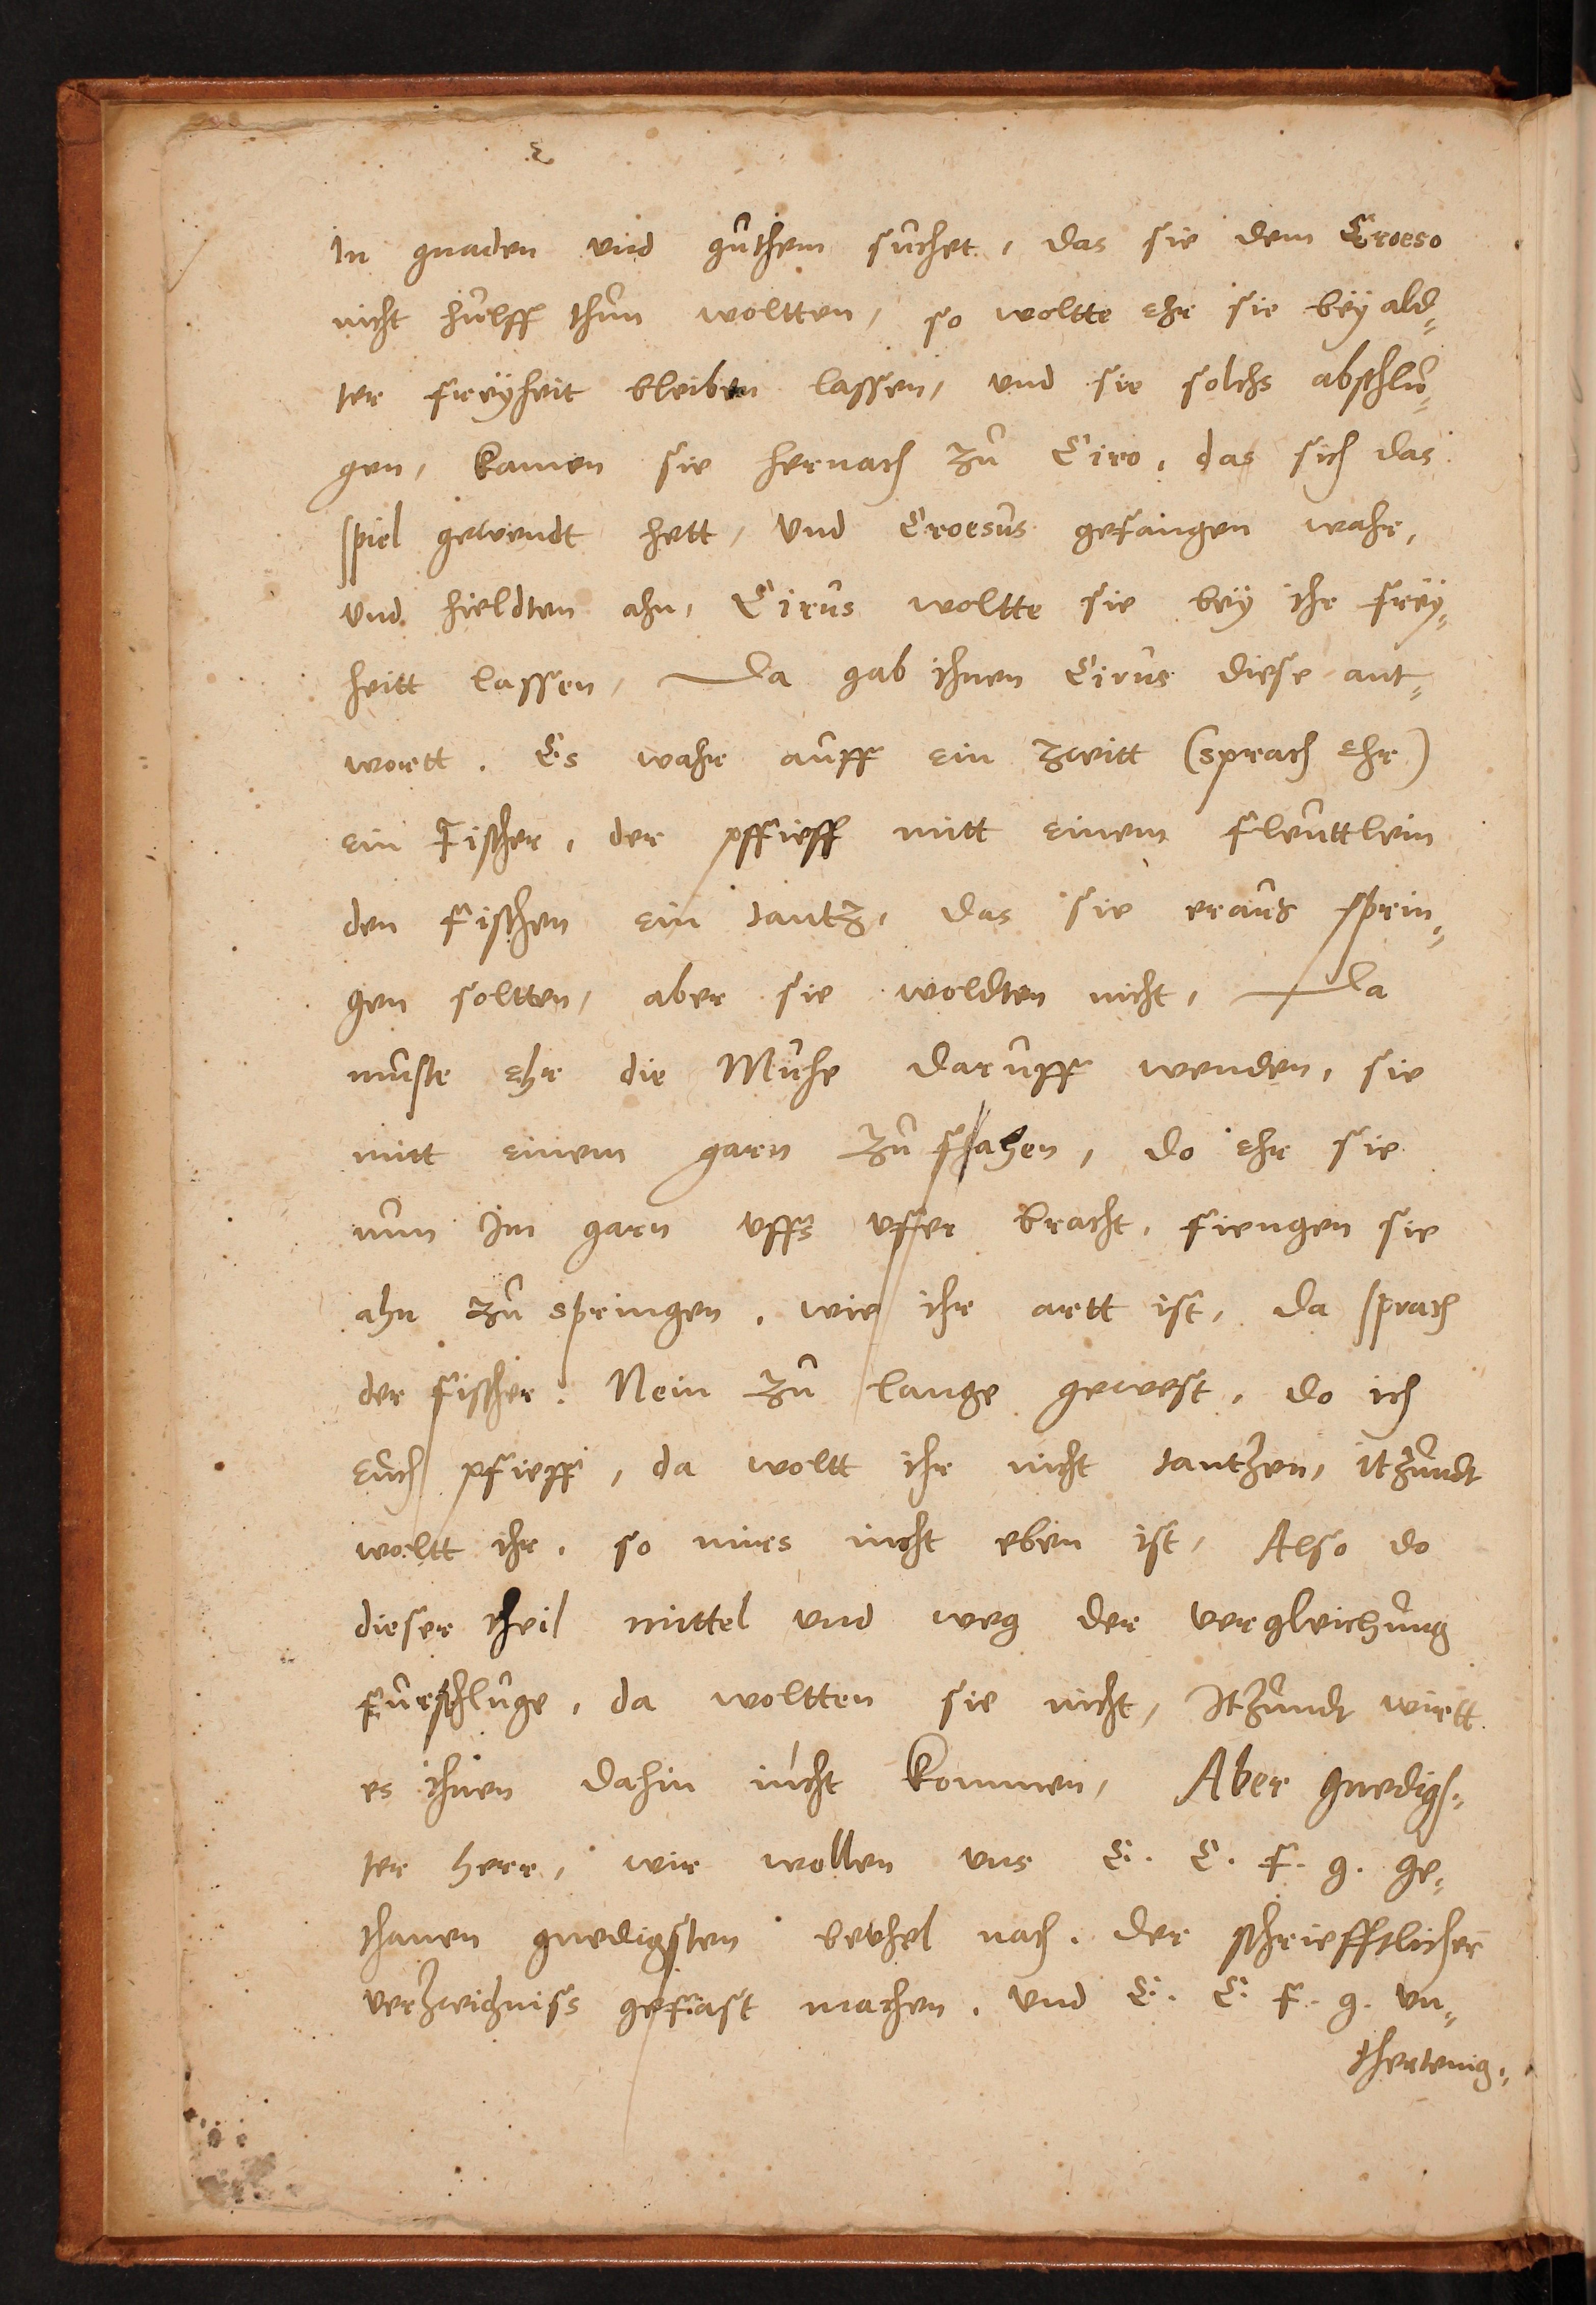 In gnaden vnd guthem suchet, das sie dem Croeso
nicht hulff thun woltten, so woltte ehr sie bëy ald⸗
ter freÿheit bleiben lassen, vnd sie solchs abschlu⸗
gen, kamen sie hernach zu Ciro, das sich das
spiel gewendt hett, vnd Croesus gefangen wahr,
vnd hieldten ahn, Cirus woltte sie beÿ ihr freÿ⸗
heitt lassen, Da gab ihnen Cirus diese ant⸗
wortt. Es wahr auff ein zeitt (sprach ehr)
ein Fischer, der pffieff mitt einem fleuttlein
den fischen ein tantz, das sie eraus sprin⸗
gen soltten, aber sie woldten nicht, Da
muste ehr die Muhe daruff wenden, sie
mitt einem garn zu fahen, do ehr sie
nun Im garn vffs vffer bracht, fiengen sie
ahn zu springen, wie ihr artt ist, da sprach
der fischer: Nein zu lange gewest, do ich
euch pfieff, da woltt ihr nicht tantzen, itzundt
woltt ihr, so mirs nicht eben ist, Also do
dieser theil mittel vnd weg der vergleichung
furschluge, da woltten sie nicht, Itzundt wirtt
es ihnen dahin nicht kommen, Aber gnedigs⸗
ter herr, wir wollen vns E. C. F. g. ge⸗
thanen gnedigsten bevhel nach, der schriefftlicher
verzeichniss gefast machen, vnd E. C. F. g. vn⸗
thertenig⸗